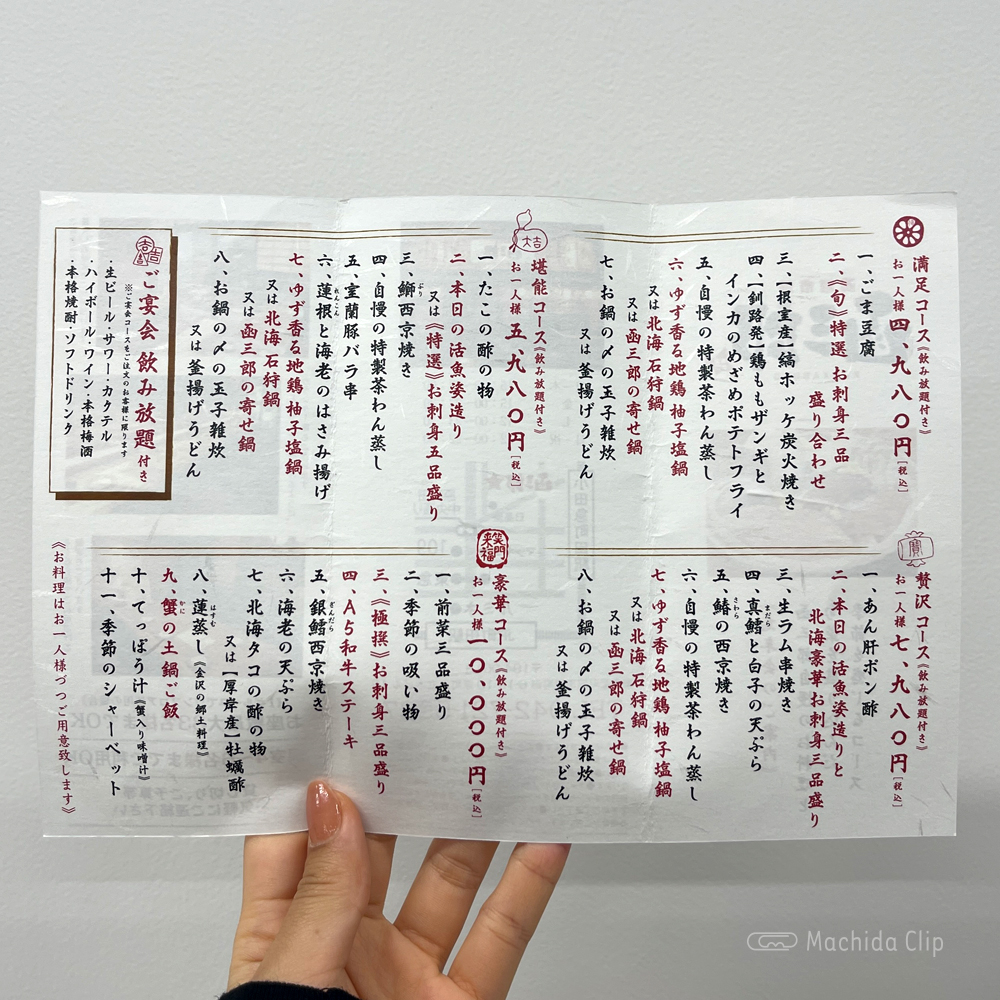 満足コース《飲み放題付き》
お一人様 四、九八〇円［税込］
一、ごま豆腐
二、《旬》特選 お刺身三品
盛り合わせ
三、【根室産】縞ホッケ炭火焼き
四、【釧路発】鶏ももザンギと
インカのめざめポテトフライ
五、自慢の特製茶わん蒸し
六、ゆず香る地鶏 柚子塩鍋
又は 北海 石狩鍋
又は 函三郎の寄せ鍋
七、お鍋の〆の玉子雑炊
又は 釜揚げうどん
大吉
堪能コース《飲み放題付き》
お一人様 五、九八〇円［税込］
一、たこの酢の物
二、本日の活魚姿造り
又は《特選》お刺身五品盛り
三、鰤西京焼き
ぶり
四、自慢の特製茶わん蒸し
五、室蘭豚バラ串
六、蓮根と海老のはさみ揚げ
れんこん
七、ゆず香る地鶏 柚子塩鍋
又は 北海 石狩鍋
又は 函三郎の寄せ鍋
八、お鍋の〆の玉子雑炊
又は 釜揚げうどん
ご宴会 飲み放題 付き
※ご宴会コースをご注文のお客様に限ります
・生ビール・サワー・カクテル
・ハイボール・ワイン・本格梅酒
・本格焼酎・ソフトドリンク
寶
贅沢コース《飲み放題付き》
お一人様 七、九八〇円［税込］
一、あん肝ポン酢
二、本日の活魚姿造りと
北海豪華お刺身三品盛り
三、生ラム串焼き
四、真鱈と白子の天ぷら
まだら
五、鰆の西京焼き
さわら
六、自慢の特製茶わん蒸し
七、ゆず香る地鶏 柚子塩鍋
又は 北海 石狩鍋
又は 函三郎の寄せ鍋
八、お鍋の〆の玉子雑炊
又は 釜揚げうどん
笑門来福
豪華コース《飲み放題付き》
お一人様 一〇、〇〇〇円［税込］
一、前菜三品盛り
二、季節の吸い物
三、《極撰》お刺身三品盛り
四、A5和牛ステーキ
五、銀鱈西京焼き
ぎんだら
六、海老の天ぷら
七、北海タコの酢の物
又は【厚岸産】牡蠣酢
八、蓮蒸し《金沢の郷土料理》
はすむ
九、蟹の土鍋ご飯
かに
十、てっぽう汁《蟹入り味噌汁》
十一、季節のシャーベット
《お料理はお一人様づつご用意致します》
Machida Clip